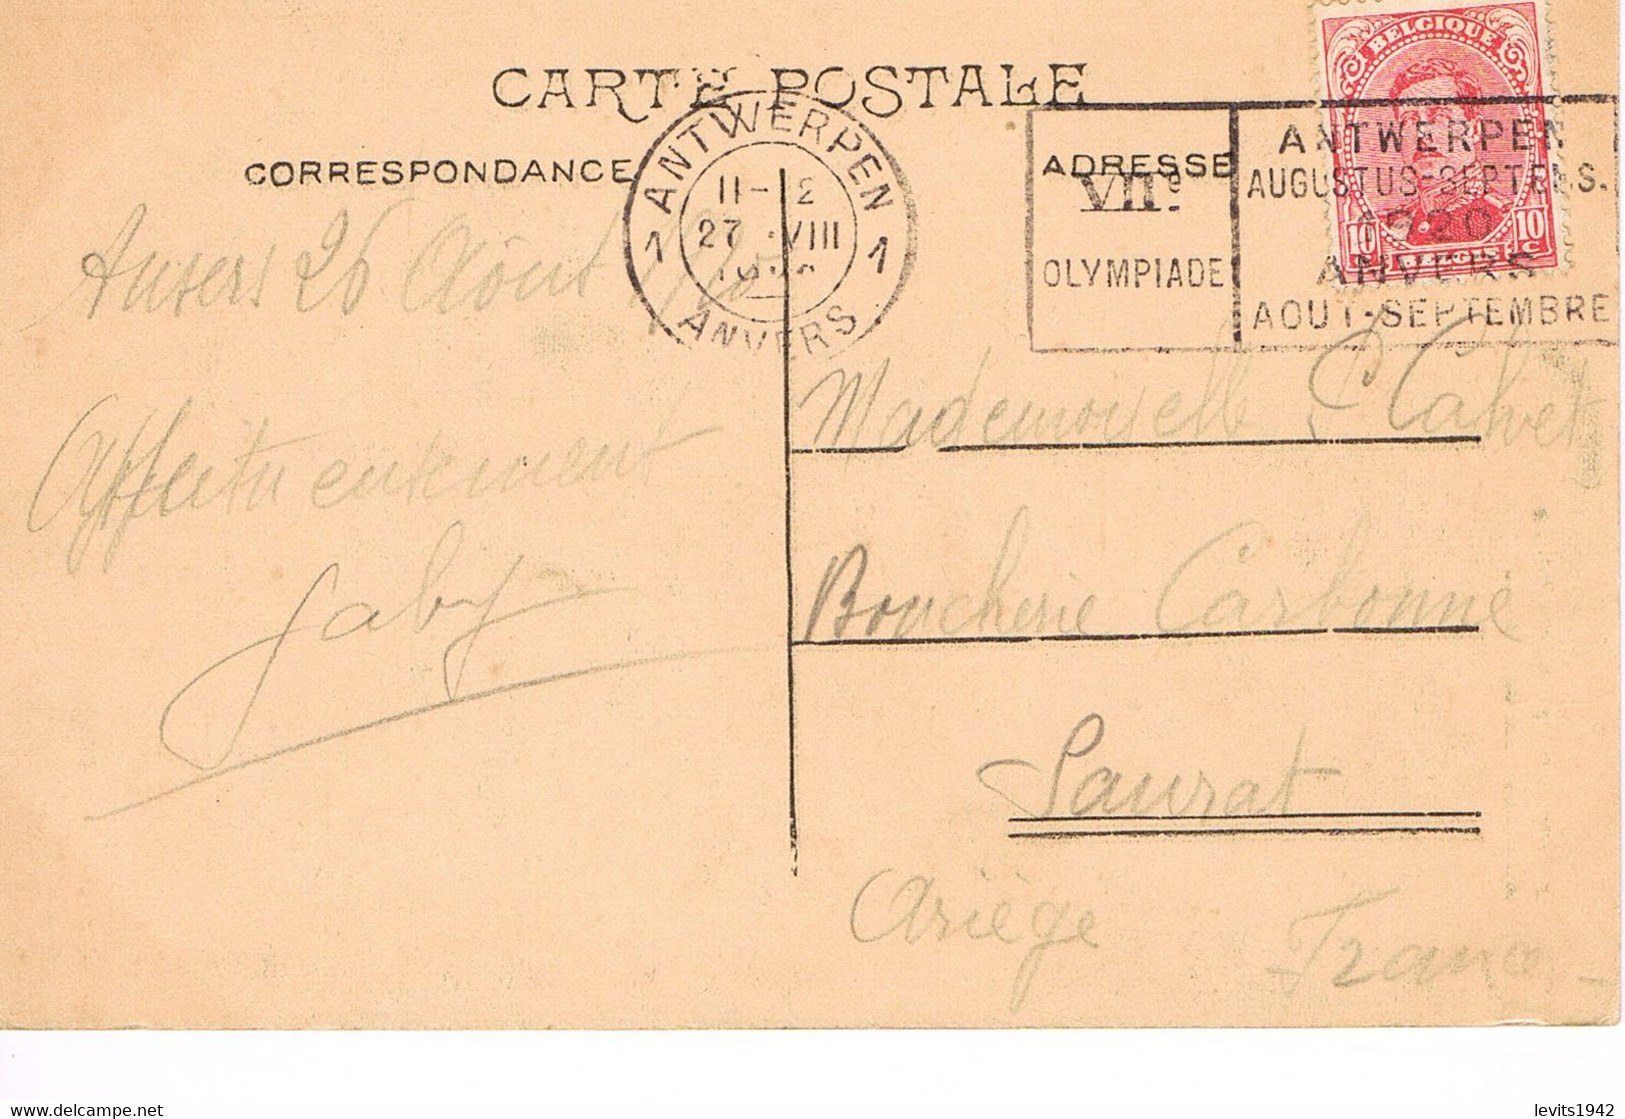 CARTE POSTALE
CORRESPONDANCE
ADRESSE
ANTWERPEN
1 11-12 1
27 VIII
ANVERS
VIIe
OLYMPIADE
ANTWERPEN
AUGUSTUS-SEPTRE S.
1920
ANVERS
AOUT-SEPTEMBRE
BELGIQUE
10c BELGIË 10c
Anvers 26 Août 1920
Affectueusement
Gaby
Mademoiselle P Calvet
Boucherie Carbonne
Saurat
Ariège France
levits1942